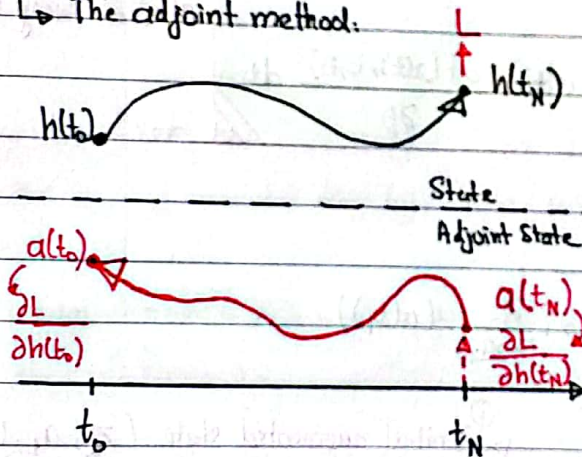 ↳ The adjoint method:
L
h(t₀)
h(t_N)
State
Adjoint State
a(t₀)
∂L
∂h(t₀)
a(t_N)
∂L
∂h(t_N)
t₀
t_N